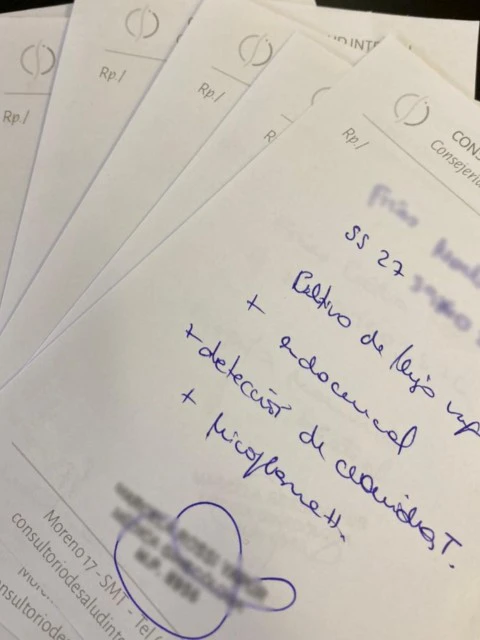 UD INT
Rp./
Rp./
Rp./
R
CONS
Consejería
Rp./
SS 27
Cultivo de flujo vag
+ endocervical
+ detección de clamidia T.
+ Micoplasma H.
Moreno 17 - SMT - Tel
consultoriodesaludint
Moreno
consultoriodes